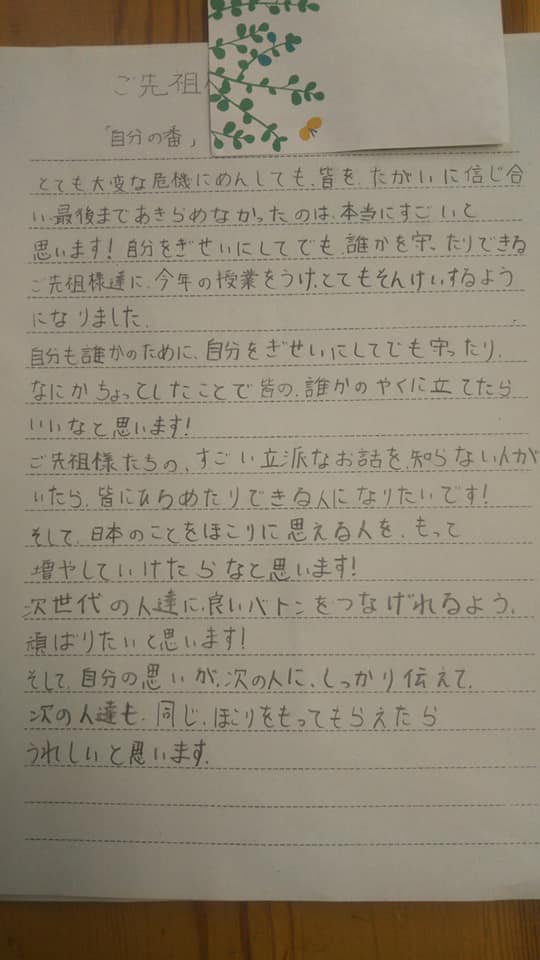 ご先祖
「自分の番」
とても大変な危機にめんしても、皆を、たがいに信じ合
い、最後まであきらめなかったのは、本当にすごいと
思います!自分をぎせいにしてでも、誰かを守ったりできる
ご先祖様達に、今年の授業をうけ、とてもそんけいするよう
になりました。
自分も誰かのために、自分をぎせいにしてでも守ったり、
なにかちょっとしたことで皆の、誰かのやくに立てたら
いいなと思います!
ご先祖様たちの、すごい立派なお話を、知らない人が
いたら、皆にひろめたりできる人になりたいです!
そして、日本のことをほこりに思える人を、もって
増やしていけたらなと思います!
次世代の人達に、良いバトンをつなげれるよう、
頑ばりたいと思います!
そして、自分の思いが、次の人に、しっかり伝えて、
次の人達も、同じ、ほこりをもってもらえたら
うれしいと思います。